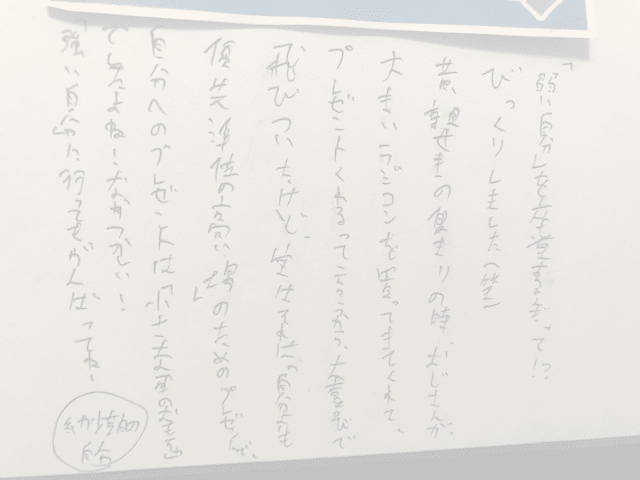 「弱い自分」を卒業するぞって!?
びっくりしました(笑)
昔、親せきの集まりの時、おじさんが、
大きいラジコンを買ってきてくれて、
プレゼントくれるって言うから、大喜びで
飛びついたけど、実はそれは「自分よりも
優先準位の高い甥のためのプレゼント」で、
自分へのプレゼントは「小さな車のおもちゃ」
でしたよね!なつかしい!
「強い自分」に行ってもがんばってねー